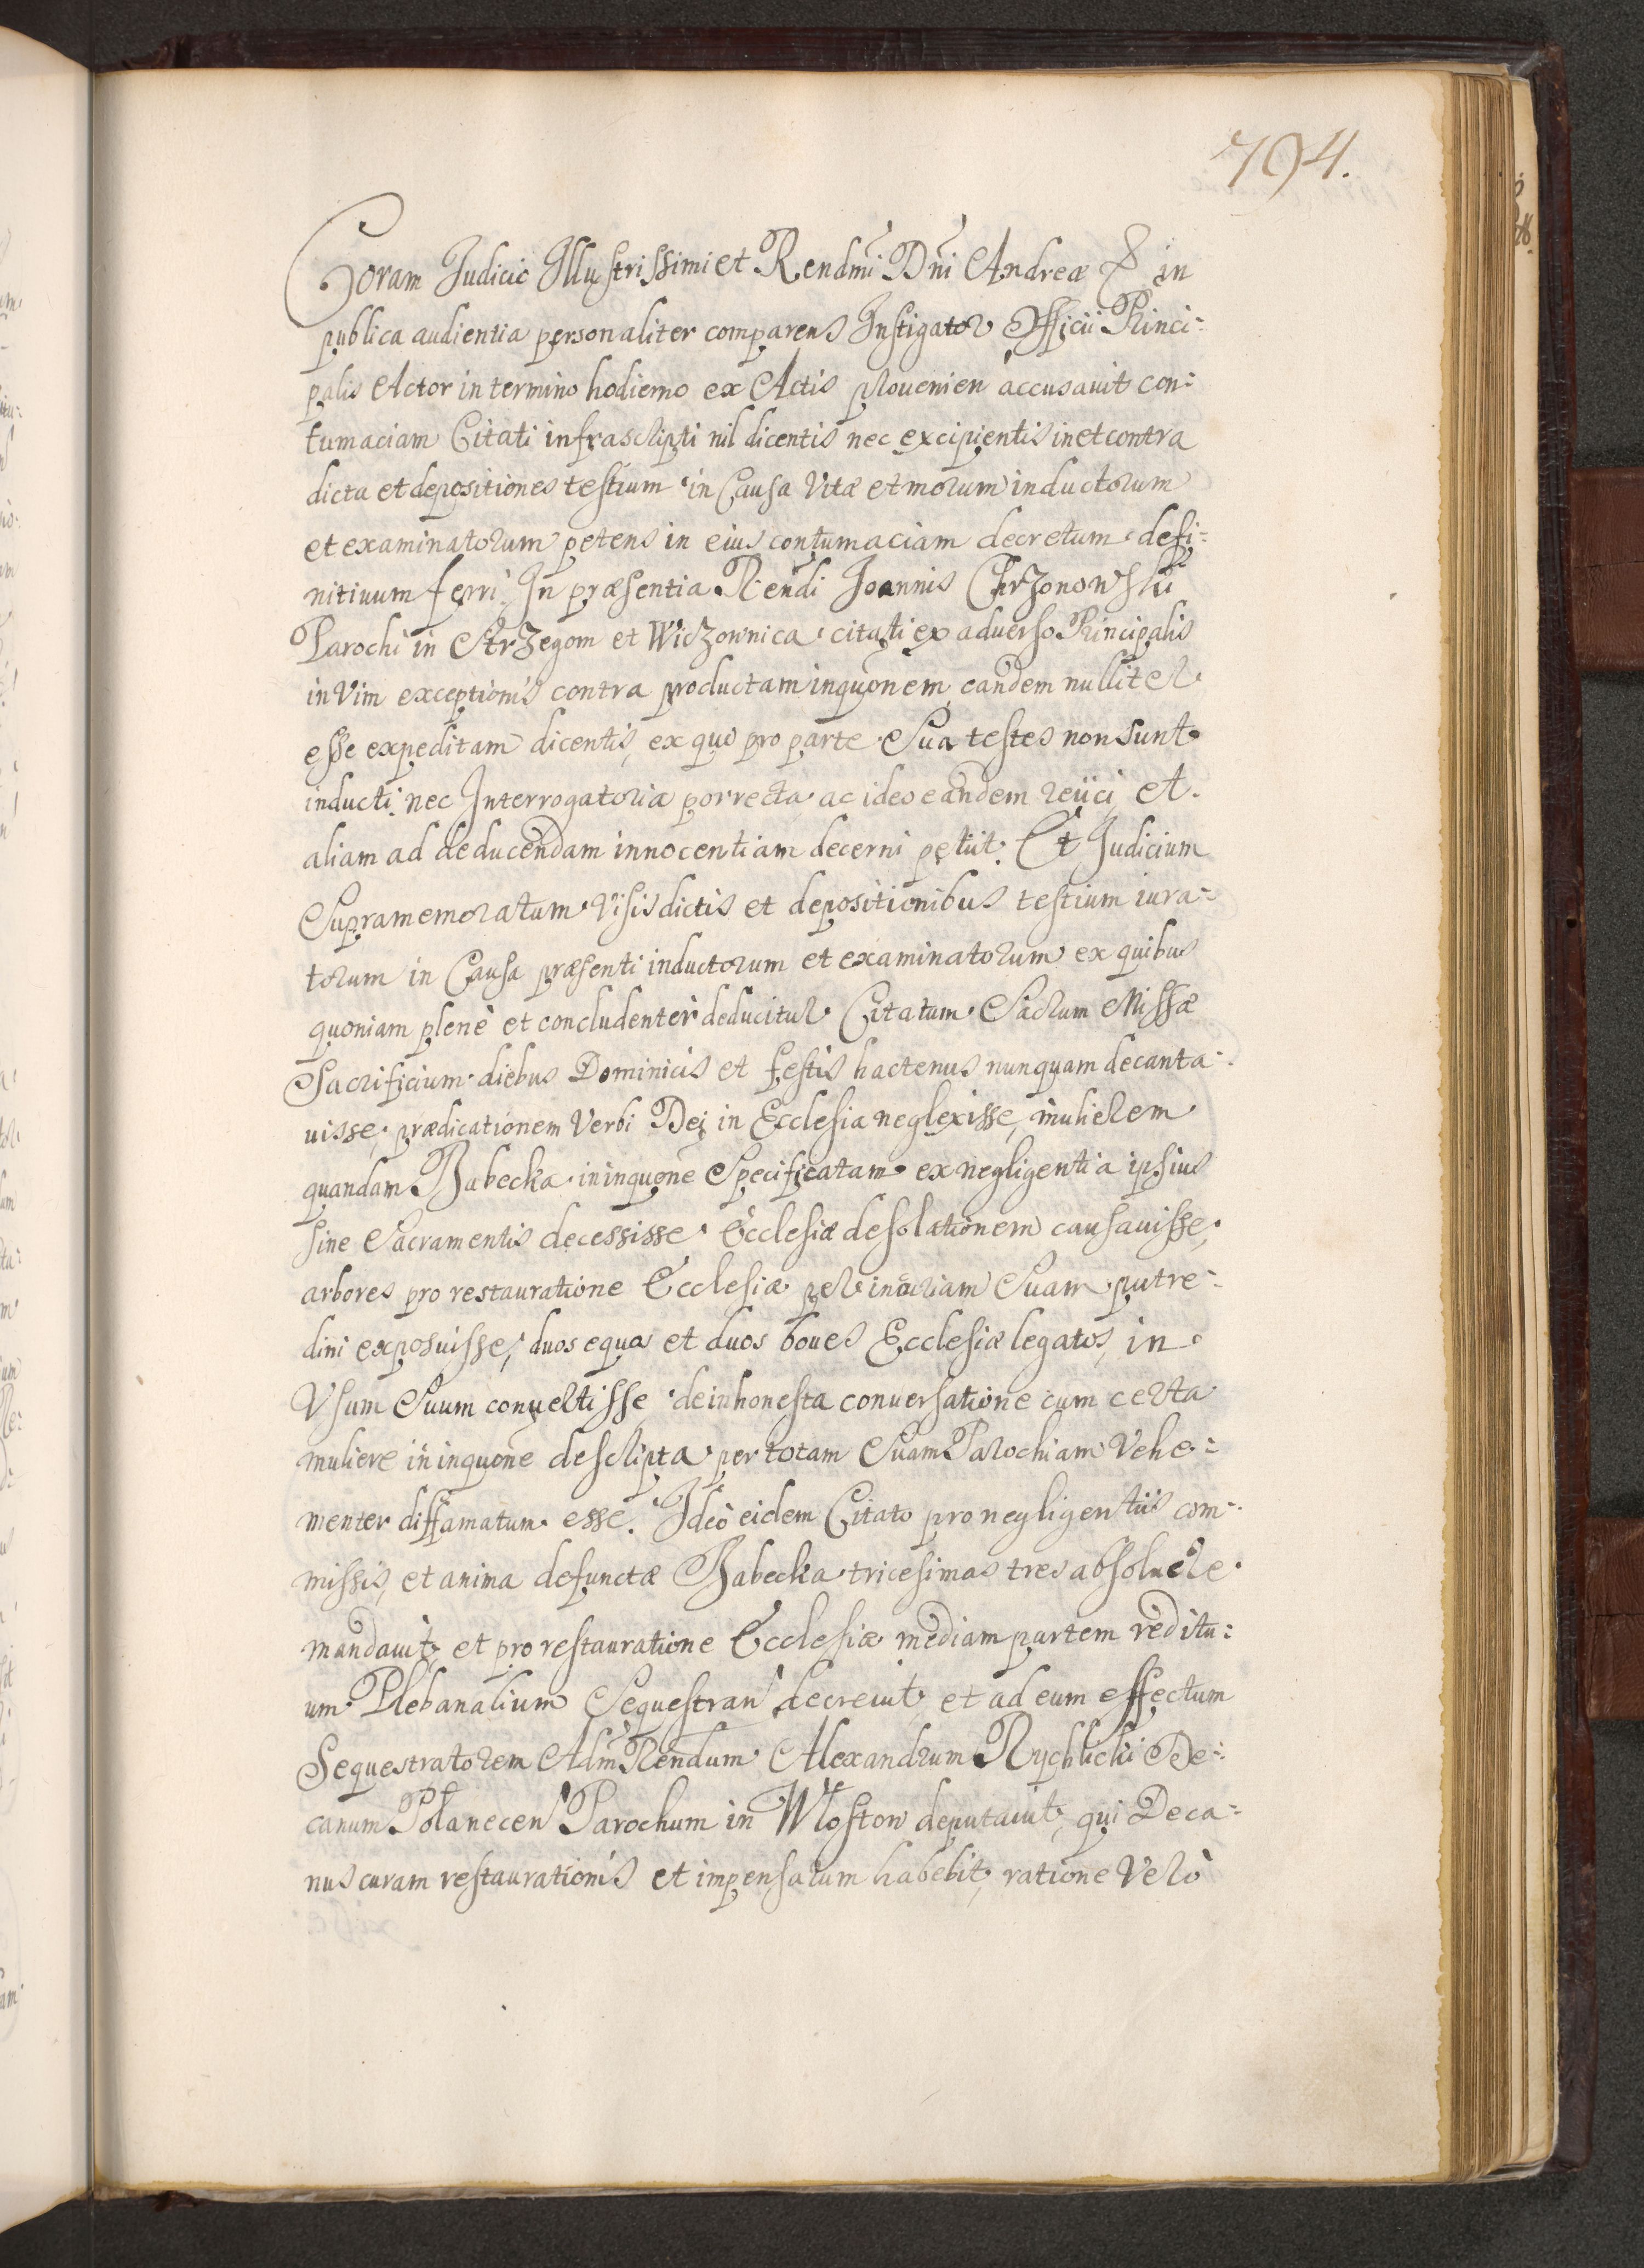 794.
Coram Judicio Illustrissimi et Rendmi Dni Andreæ & in
publica audientia personaliter comparens Instigator Officii Princi=
palis Actor in termino hodierno ex Actis prouenien accusauit con=
tumaciam Citati infrascripti nil dicentis nec excipientis in et contra
dicta et depositiones testium in Causa Vitæ et morum inductorum
et examinatorum petens in eius contumaciam decretum defi=
nitiuum ferri. In præsentia Rendi Joannis Chrzonowskii
Parochi in Strzegom et Wiczownica citati ex aduerso Principalis
in Vim exceptionis contra productam inquonem eandem nulliter
esse expeditam dicentis, ex quo pro parte Sua testes non sunt
inducti nec Interrogatoria porrecta, ac ideo eandem reijci et
aliam ad deducendam innocentiam decerni petiit. Et Judicium
Supramemoratum Visis dictis et depositionibus testium iura=
torum in Causa præsenti inductorum et examinatorum ex quibus
quoniam plenè et concludenter deducitur Citatum Sacrum Missæ
Sacrificium diebus Dominicis et festis hactenus nunquam decanta=
uisse, prædicationem Verbi Dei in Ecclesia neglexisse, mulierem
quandam Babecka in inquone Specificatam ex negligentia ipsius
sine Sacramentis decessisse Ecclesiæ desolationem causauisse,
arbores pro restauratione Ecclesiæ per incuriam Suam putre=
dini exposuisse, duos equos et duos boues Ecclesiæ legatos, in
Vsum Suum conuertisse de inhonesta conuersatione cum certa
muliere in inquone descripta per totam Suam Parochiam Vehe=
menter diffamatum esse. Ideò eidem Citato pro negligentiis com=
missis, et anima defunctæ Babecka tricesimas tres absoluere
mandauit, et pro restauratione Ecclesiæ mediam partem reditu=
um Plebanalium Sequestrari decreuit, et ad eum effectum
Sequestratorem Adm Rendum Alexandrum Rychlicki De=
canum Polanecen Parochum in Wloston deputauit, qui Deca=
nus curam restaurationis et impensarum habebit, ratione Verò